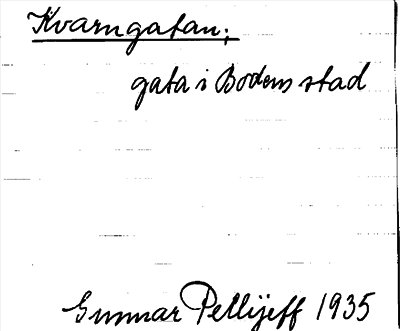 Kvarngatan;
gata i Bodens stad
Gunnar Pellijeff 1935